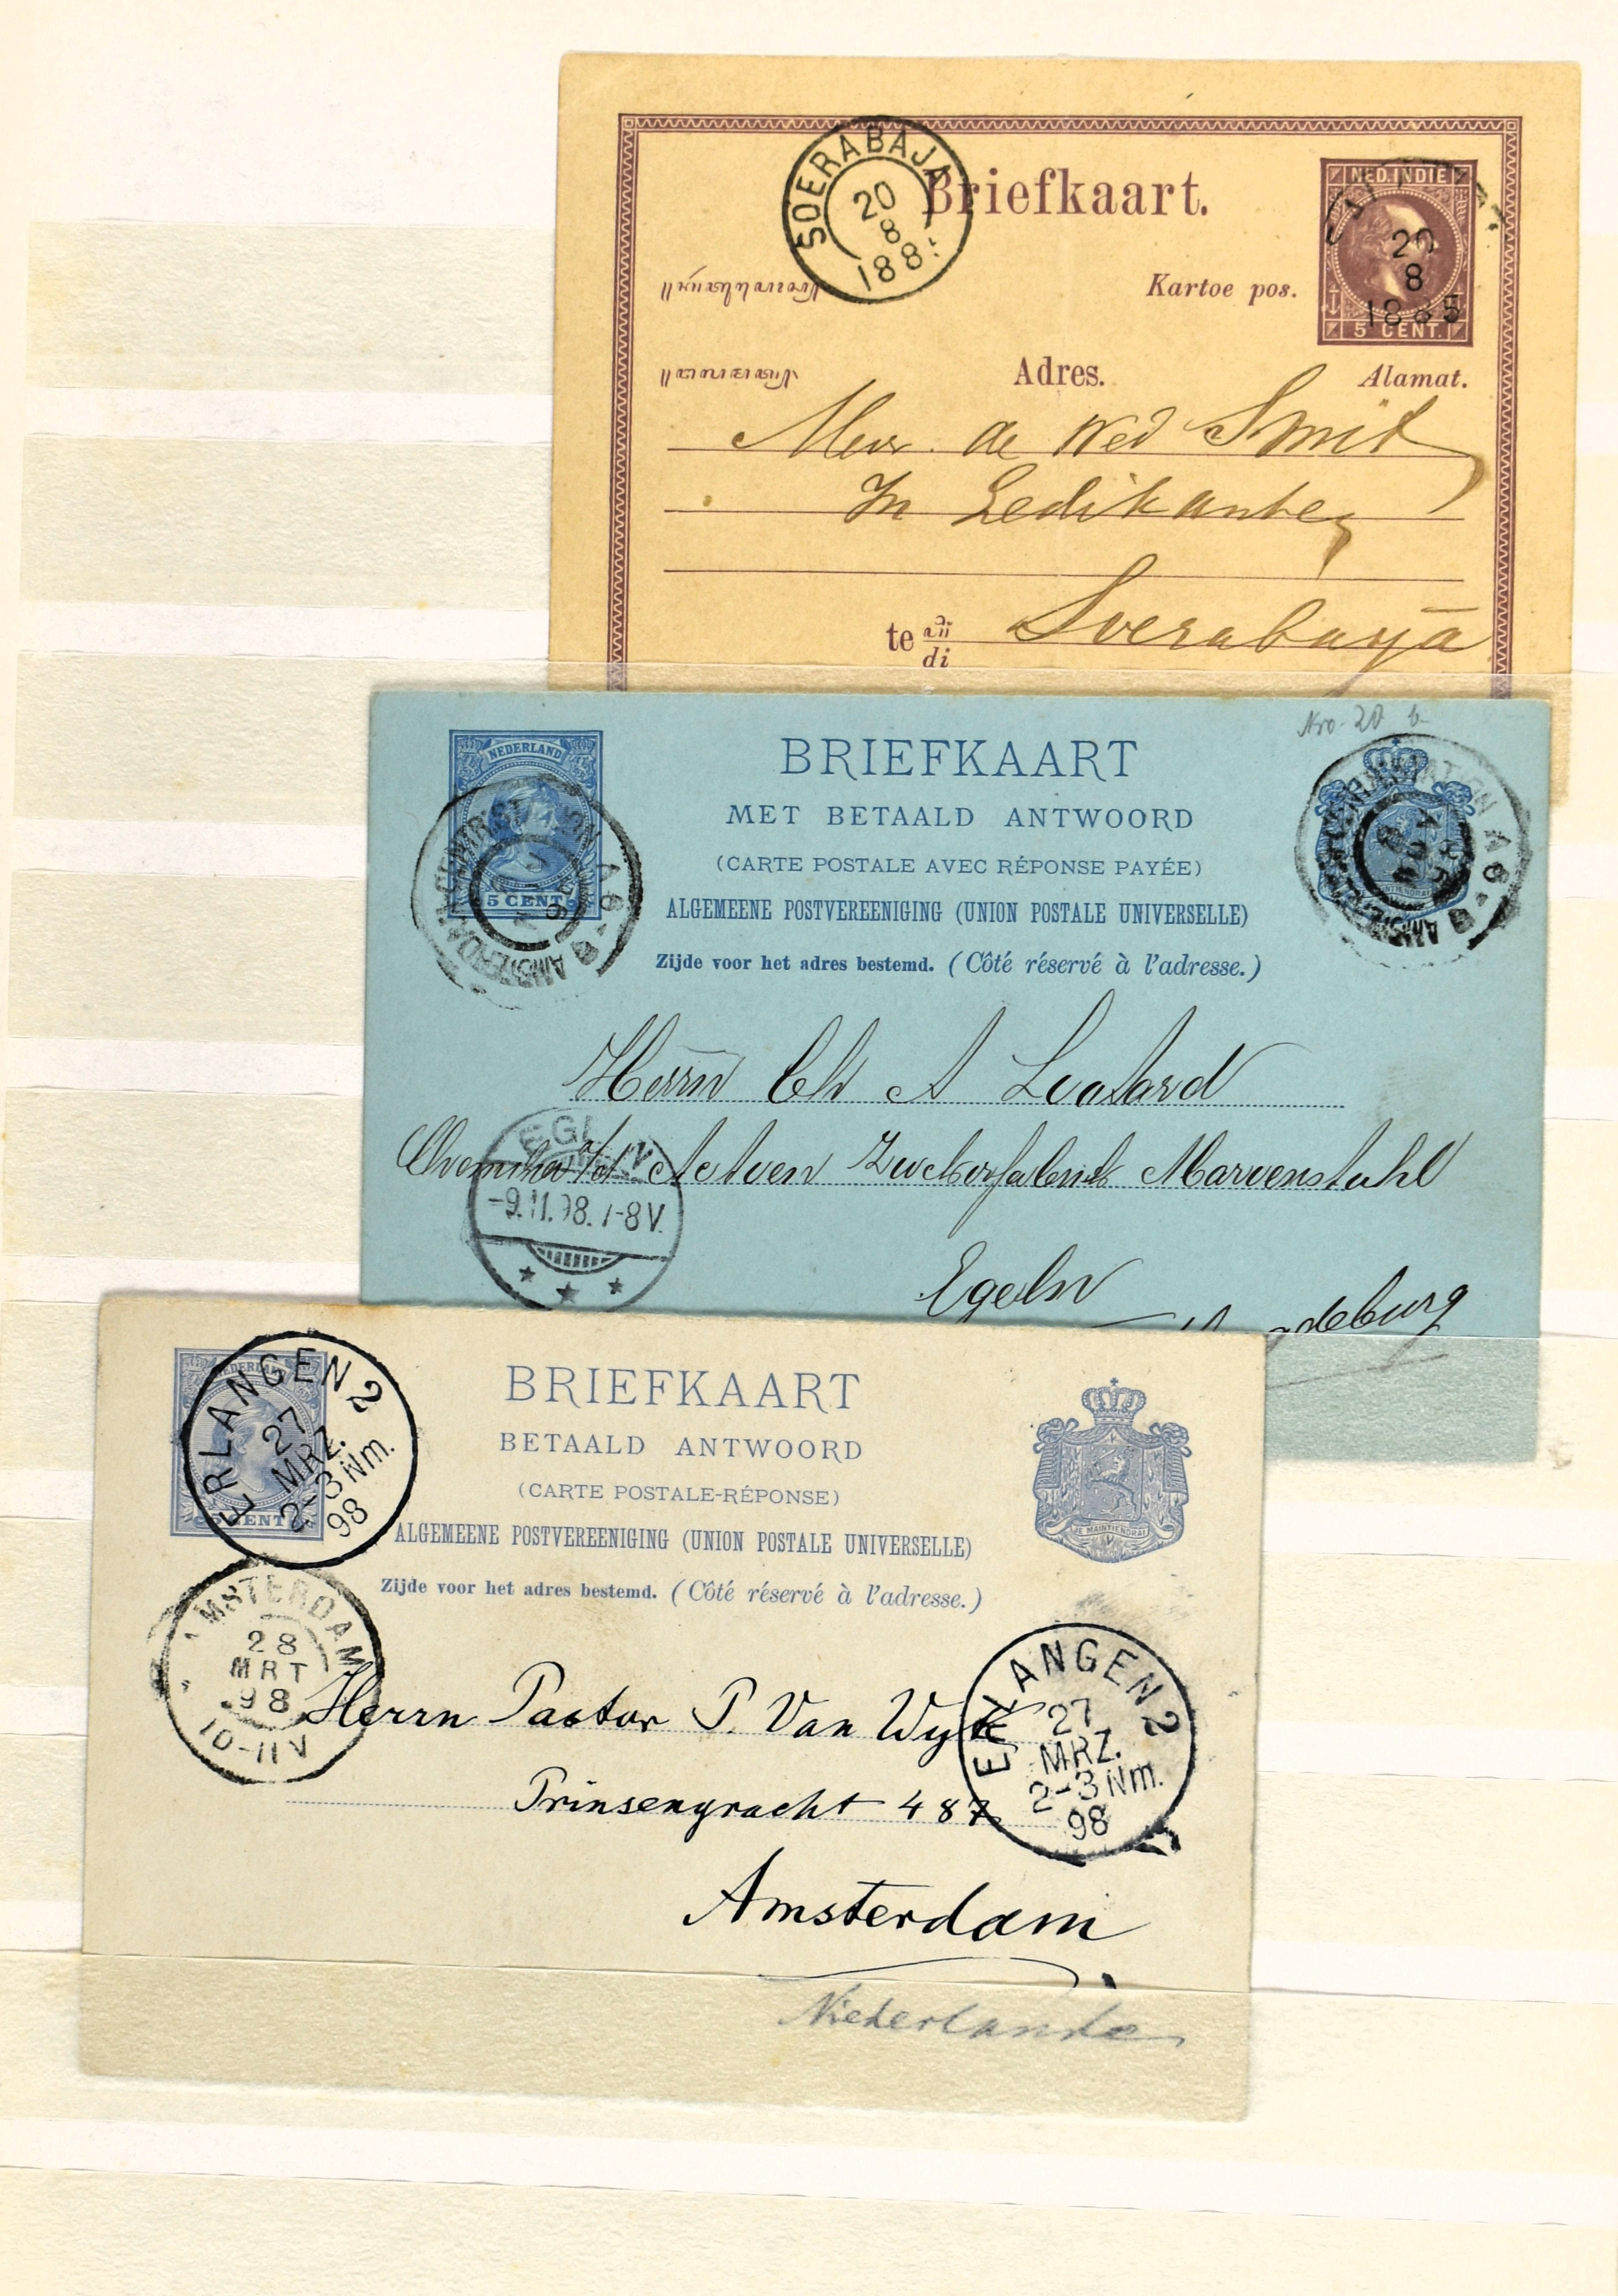 SOERABAJA
20
8
188
Briefkaart.
NED. INDIE
20
8
1885
5 CENT.
Kartoe pos.
Adres.
Alamat.
Mevr. de Wed Smit
In Ledikanten
te di Soerabaya
Nro. 20 b
NEDERLAND
5 CENT
BRIEFKAART
MET BETAALD ANTWOORD
(CARTE POSTALE AVEC RÉPONSE PAYÉE)
ALGEMEENE POSTVEREENIGING (UNION POSTALE UNIVERSELLE)
Zijde voor het adres bestemd. (Côté réservé à l'adresse.)
AMSTERDAM
Herrn Ch A
Marvenstuhl
-9.11.98. 7-8V.
Egeln
deburg
NEDERLAND
CENT
ERLANGEN 2
27
MRZ.
2-3 Nm.
98
BRIEFKAART
BETAALD ANTWOORD
(CARTE POSTALE-RÉPONSE)
ALGEMEENE POSTVEREENIGING (UNION POSTALE UNIVERSELLE)
Zijde voor het adres bestemd. (Côté réservé à l'adresse.)
JE MAINTIENDRAI
AMSTERDAM
28
MRT
98
10-11V
Herrn Pastor P. Van Wyk
Prinsengracht 487
Amsterdam
Niederlande
ERLANGEN 2
27
MRZ.
2-3 Nm.
98